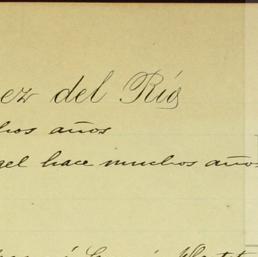 ez del Río
hos años
gel hace muchos años